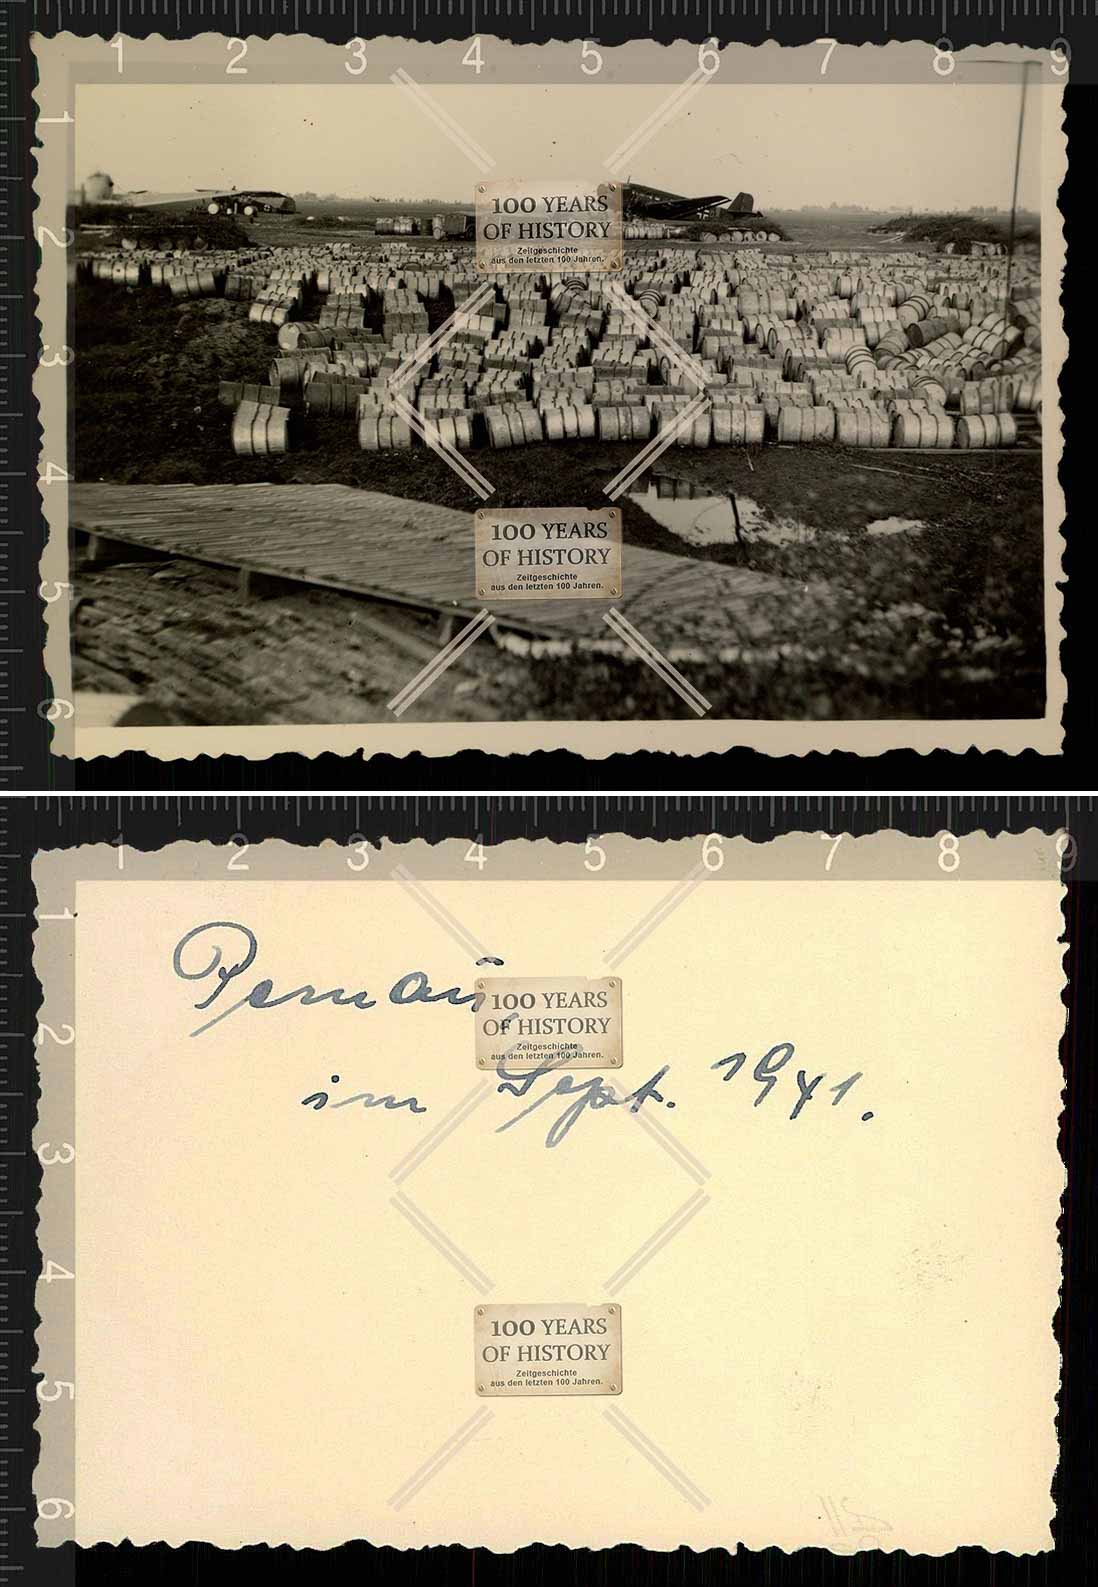 1 2 3 4 5 6 7 8 9
1
2
3
4
5
6
100 YEARS
OF HISTORY
Zeitgeschichte
aus den letzten 100 Jahren.
100 YEARS
OF HISTORY
Zeitgeschichte
aus den letzten 100 Jahren.
1 2 3 4 5 6 7 8 9
1
2
3
4
5
6
Pernau
im Sept. 1941.
100 YEARS
OF HISTORY
Zeitgeschichte
aus den letzten 100 Jahren.
100 YEARS
OF HISTORY
Zeitgeschichte
aus den letzten 100 Jahren.